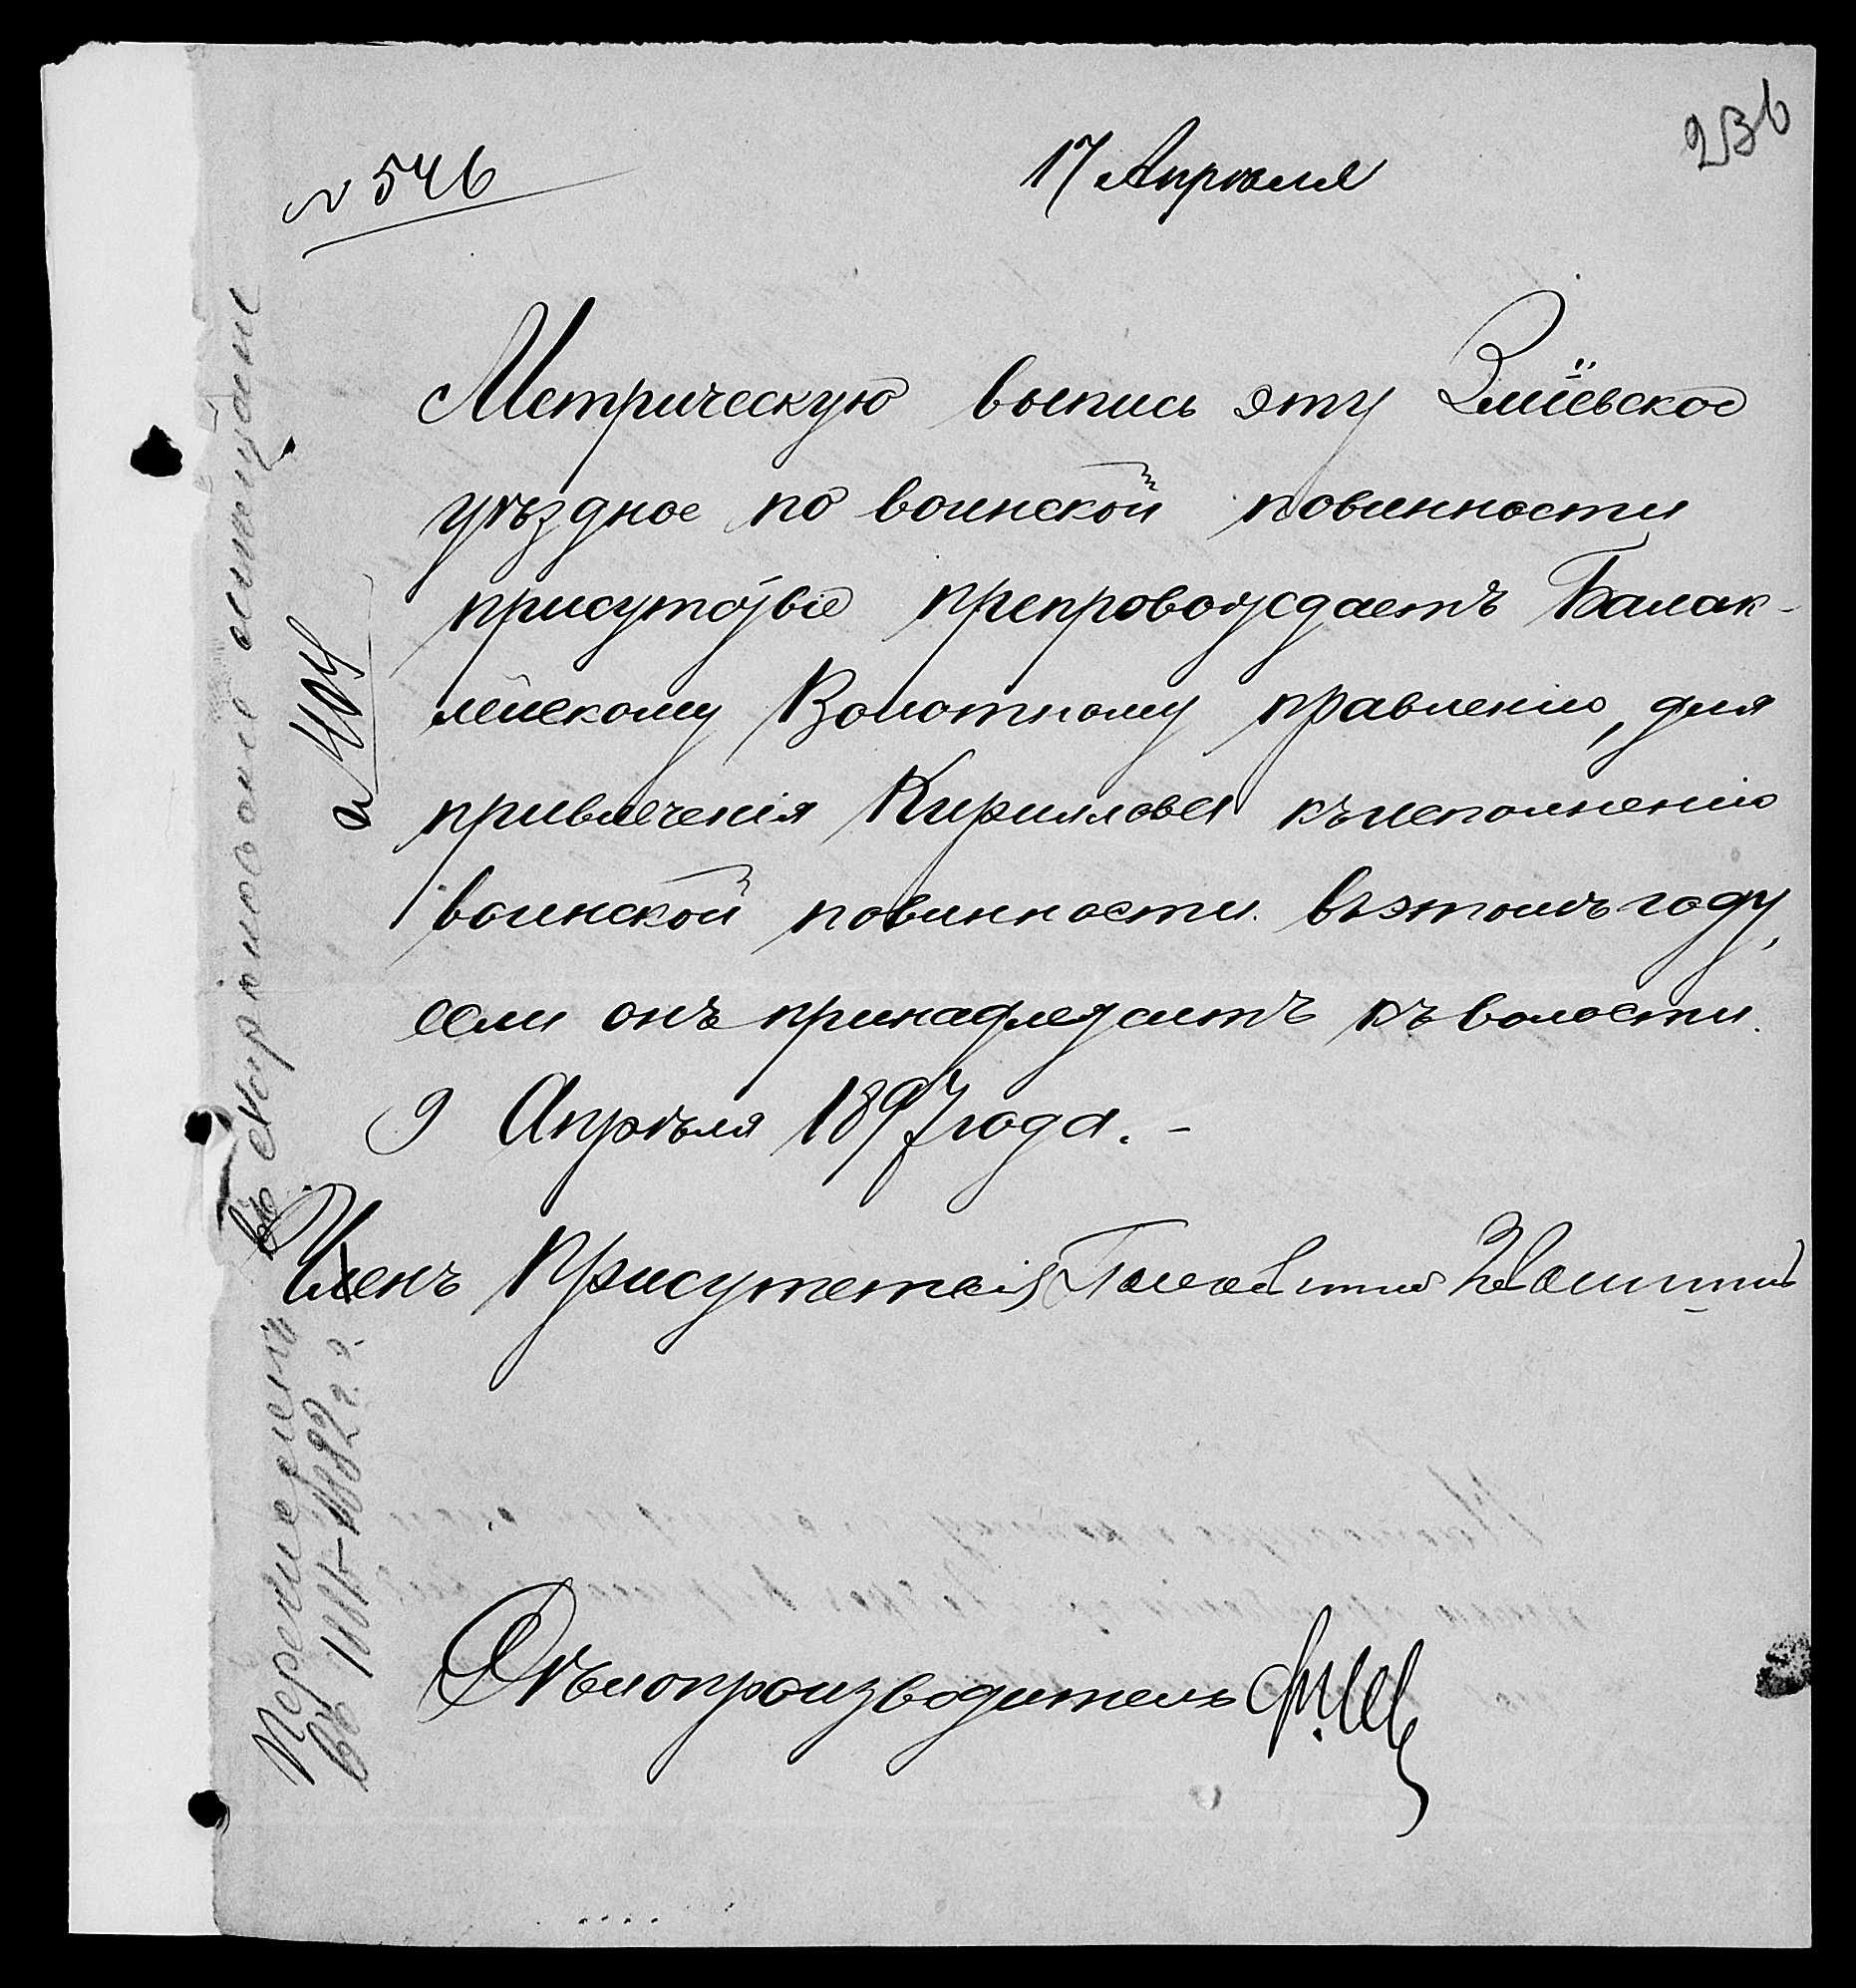 236
№ 546
17 Апрѣля
Метрическую выпись эту Зміевское
уѣздное по воинской повинности
присутствіе препровождаетъ Балак-
лейскому Волостному правленію, для
привлеченія Кириллова къ исполненію
воинской повинности въ этомъ году,
если онъ принадлежитъ къ волости.
9 Апрѣля 1897 года. -
Членъ Присутствія
Дѣлопроизводитель
№ 404
въ 1881-1882 г.